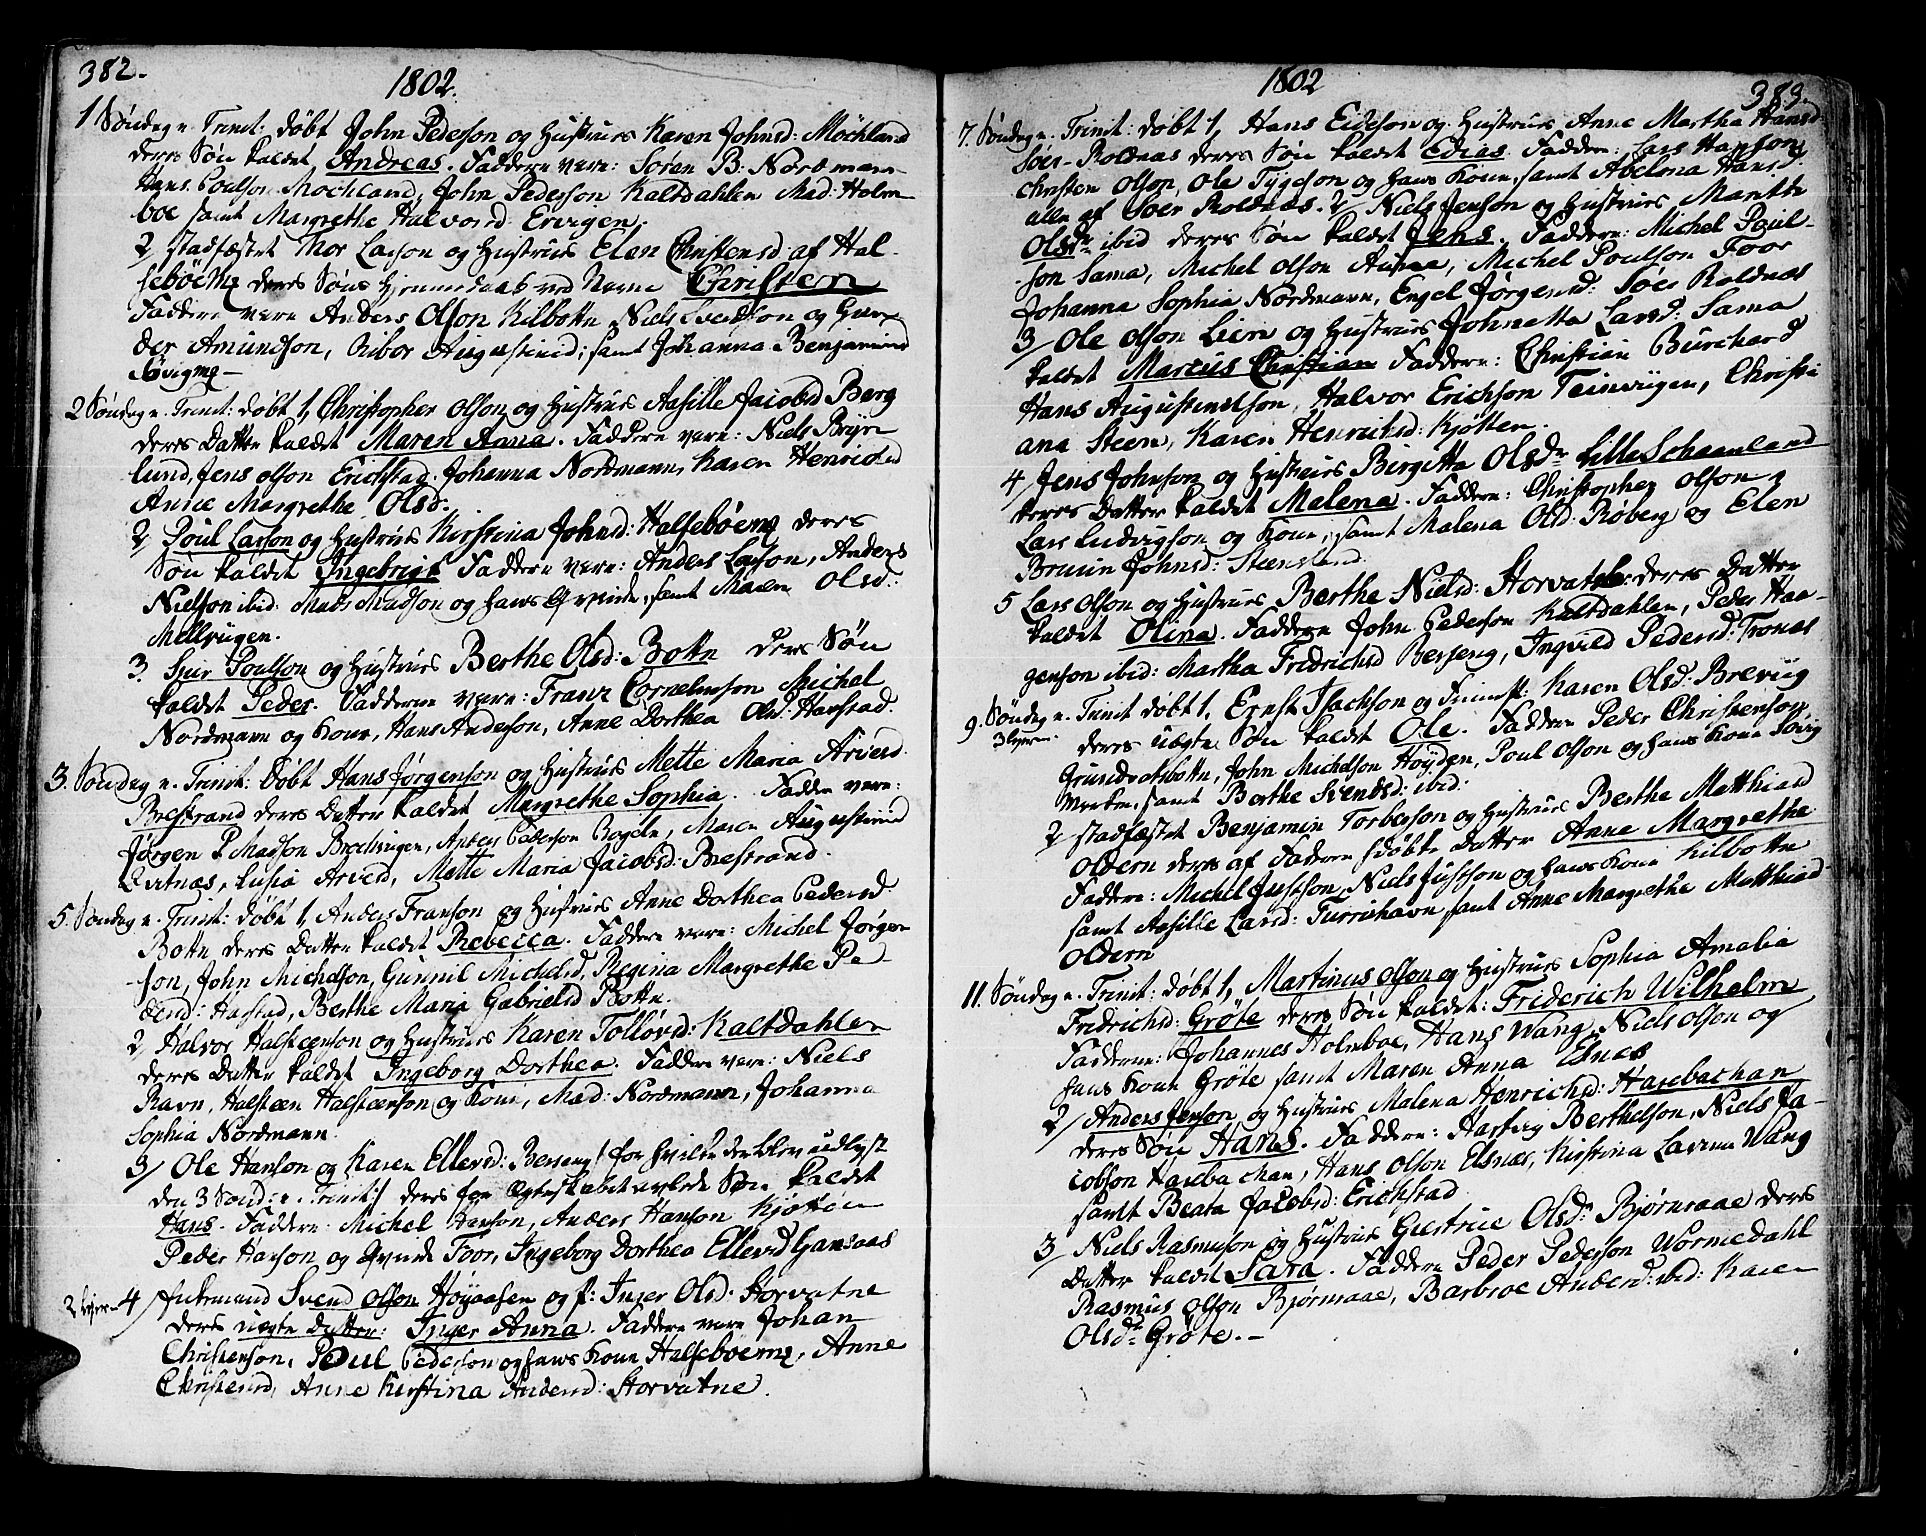 382.
1802.
1 Søndag e. Trinit: døbt John Pederson og Hustrues Karen Johnsd: Möchland
deres Søn kaldet Andreas. Faddere vare: Soren B: Nordmann
Hans Poulson Mochland, John Pederson Kaltdahlen Mad: Holm
boe samt Margrethe Halvorsd Ervigen.
2 stadfæstet Mor Larson og Hustrues Elen Christensd: af Hal
sebøe deres Søns Hjemmedaab ved Navn Christen
Faddere vare Anders Olson Kilbotn Niels Svendson og
Amundson, Augustinid; samt Johanna Benjaminsd
2 Søndag e. Trinit: døbt 1, Christopher Olson og Hustrues Aasille Jacobsd Berg
deres Datter kaldet Maren Anna. Faddere vare: Niels Bryn
lund, Jens olson Erichstad, Johanna Nordmann, Karen Henricsd
Anne Margrethe Olsd:
2 Poul Larson og Hustrues Kirstina Johnsd: Halsebøe deres
Søn kaldet Ingebrigt Faddere vare: Anders Larson, Anders
Nielson ibid: Mads Madson og hans Qvinde, samt Maren Olsd:
Mellvigen.
3. Siur Poulson og Hustrues Berthe Olsd: Botn deres Søn
kaldet Peder. Faddere vare: Franz Corneliuson Michel
Nordmann og Kone, Hans Anderson, Anne Dorthea Olsd: Harstad.
3. Søndag e. Trinit: døbt Hans Jørgenson og Hustrues Mette Maria Arvesd.
Brestrand deres Datter kaldet Margrethe Sophia. Faddere vare:
Jørgen P Madson Bredvigen, Anders Pederson Bogeln, Maren Augustinid
Qvitnæs, Lusia Arvesd, Mette Maria Jacobsd: Brestrand.
5. Søndag e. Trinit: døbt 1, Anders Franson og Hustrues Anne Dorthea Pedersd.
Botn deres Datter kaldet Rebecca. Faddere vare: Michel Jørgen
son, John Michelson, Gunnil Michelsd, Regina Margrethe Pe
dersd: Harstad, Berthe Maria Gabrielsd Botn.
2 Halvor Halsteenson og Hustrues Karen Tollevsd: Kaltdahlen
deres Datter kaldet Ingeborg Dorthea. Faddere vare: Niels
Ravn, Halsteen Halsteenson og Kone, Mad: Nordmann, Johanna
Sophia Nordmann.
3/ Ole Hanson og Karen Ellevsd: Berseng/ for hvilke der blev udlyst
den 3 Sønd: e. Trinit:/ deres før Ægteskabet avlede Søn kaldet
Hans. Faddere: Michel Hanson, Anders Hanson Kjøtten
Peder Hanson og Qvinde Foor, Ingeborg Dorthea Ellevsd Gansaas
4/ Enkemand Svend Olson Høyaasen og p: Inger Olsd. Storvatne
deres uægte Datter: Inger Anna. Faddere vare Johan
Christenson, Poul Pederson og hans Kone Halsebøe, Anne
Christensd, Anne Kirstina Andersd: Storvatne.
1802
383.
7. Søndag e. Trinit: døbt 1, Hans Eideson og Hustrues Anne Martha Hansd
Søer-Roldnæs deres Søn kaldet Edias. Faddere: Lars Hanson,
Christen Olson, Ole Tygeson og hans Kone, samt Abelona Hansd
alle af Søer Roldnæs. 2/ Niels Jenson og Hustrues Marethe
Olsdr ibid deres Søn kaldet Jens. Faddere: Michel Poul-
son Sama, Michel Olson Aunæ, Michel Poulson Foor
Johanna Sophia Nordmann, Engel Jørgensd: Søer Roldnæs
3/ Ole Olson Lien og Hustrues Johnetta Larsd: Sama
kaldet Marcus Christian Faddere: Christian Burchard
Hans Augustinusson, Halvor Erichson Teinvigen, Christi
ana Steen, Karen Henrichsd: Kjøtten.
4/ Jens Johnson og Hustrues Birgitta Olsdr Lille Schaanland
deres Datter kaldet Malena. Faddere: Christopher Olson,
Lars Ludvigson og Kone, samt Malena Olsd: Roberg og Elen
Johnsd: Steensland.
5 Lars Olson og Hustrues Berthe Nielsd: Storvatne: deres Datter
kaldet Olina. Faddere John Pederson Kaltdahlen, Peder Haa-
genson ibid: Martha Fridrichsd Berseng, Ingvild Pedersd: Tronæs
9. Søndag e. Trinit døbt 1, Ernst Isackson og Fruent: Karen Olsd: Brevüg
deres uægte Søn kaldet Ole. Faddere Peder Christenson
Grundvatsbotn, John Michelson Høyden, Poul Olson og hans Kone Søvig
samt Berthe Svendsd: ibid:
2 stadfæstet Benjamin Torberson og Hustrues Berthe Matthiasd
Oldern deres af Faderen hjemdøbte Datter Anne Margrethe
Faddere: Michel Justson, Niels Justson og hans Kone Kilbotn
samt Aasille Larsd: Furrishavn, samt Anne Margrethe Matthiasd
Oldern
11. Søndag e. Trinit: døbt 1, Martinus Olson og Hustrues Sophia Amalia
Fridrichsd: Grøte deres Søn kaldet: Friderich Wilhelm
Faddere: Johannes Holmboe, Hans Wang, Niels Olson og
hans Kone Grøte samt Maren Anna Elnæs
2/ Anders Jenson og Hustrues Malena Henrichsd: Hasebachan
deres Søn Hans. Faddere: Hartvig Berthelson, Niels Ja-
cobson Hasebachan, Hans Olson Elsnæs, Kirstina Lavinna Wang
samt Beata Jacobsd: Erichstad
3/ Niels Rasmuson og Hustrues Giertrue Olsdr Bjørnraae deres
Datter kaldet Sara. Faddere Peder Pederson Wormedahl
Rasmus Olson Bjørnraae, Barbroe Andersd: ibid: Karen
Olsdr Grøte.-